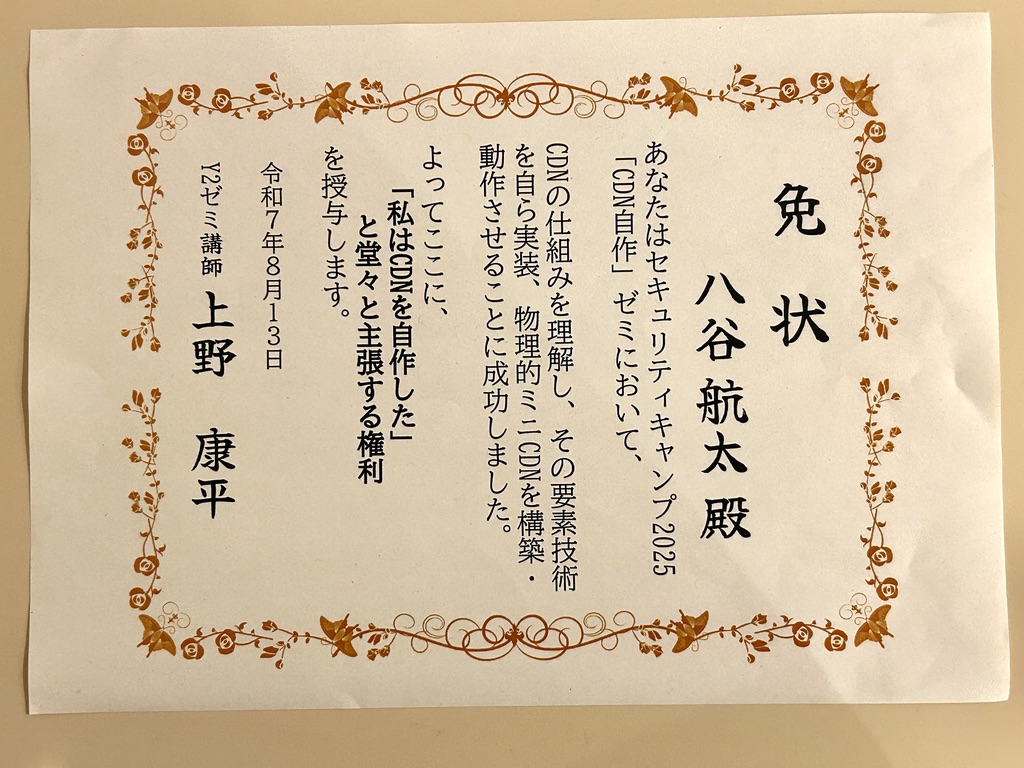 免状
八谷航太 殿
あなたはセキュリティキャンプ2025
「CDN自作」ゼミにおいて、
CDNの仕組みを理解し、その要素技術
を自ら実装、物理的ミニCDNを構築・
動作させることに成功しました。
よってここに、
「私はCDNを自作した」
と堂々と主張する権利
を授与します。
令和7年8月13日
Y2ゼミ講師 上野 康平